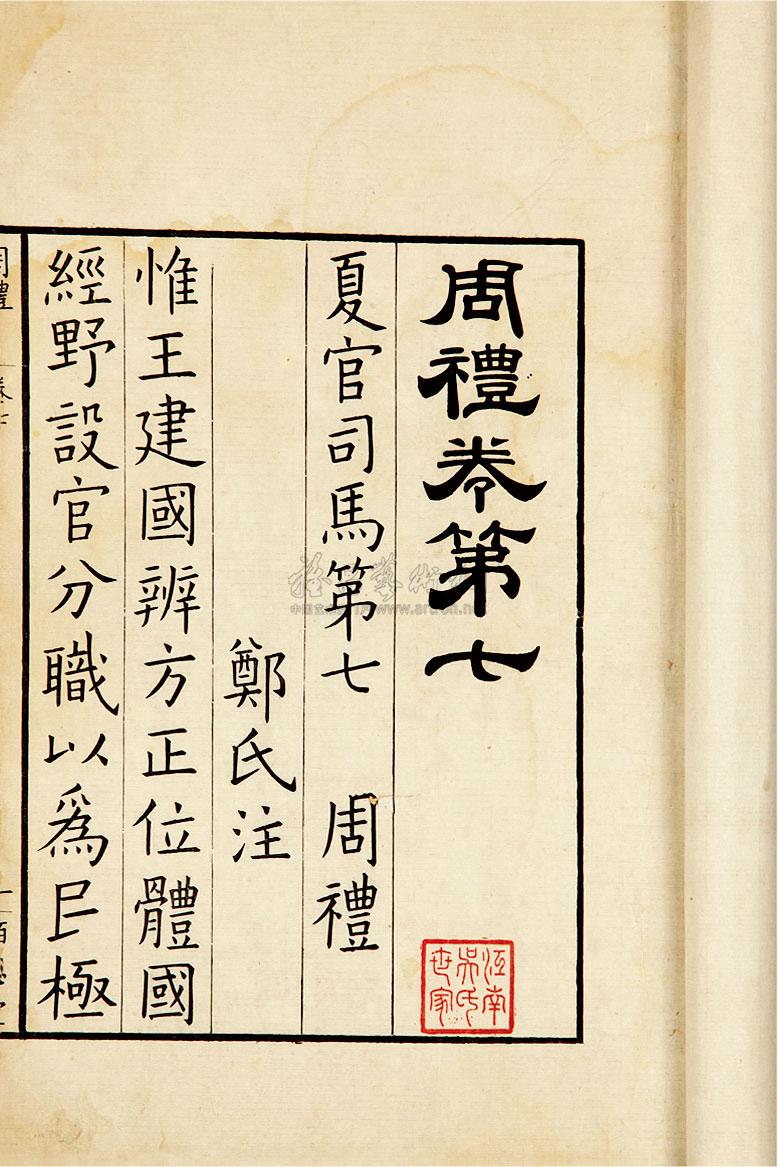 周禮卷第七
夏官司馬第七 周禮
鄭氏注
惟王建國辨方正位體國
經野設官分職以爲民極
江南
吳氏
世家
周禮 卷七
www.artron.net